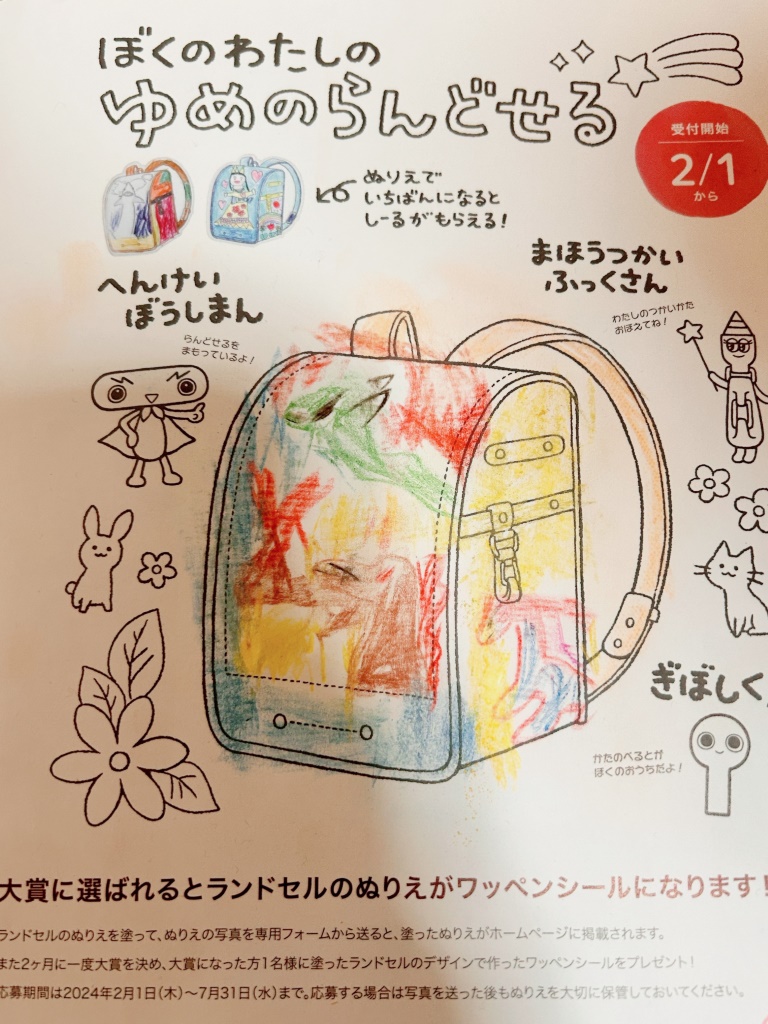 ぼくのわたしの
ゆめのらんどせる
受付開始
2/1
から
ぬりえで
いちばんになると
しーるがもらえる!
へんけい
ぼうしまん
らんどせるを
まもっているよ!
まほうつかい
ふっくさん
わたしのつかいかた
おぼえてね!
ぎぼしく
かたのべるとが
ぼくのおうちだよ!
大賞に選ばれるとランドセルのぬりえがワッペンシールになります!
ランドセルのぬりえを塗って、ぬりえの写真を専用フォームから送ると、塗ったぬりえがホームページに掲載されます。
また2ヶ月に一度大賞を決め、大賞になった方1名様に塗ったランドセルのデザインで作ったワッペンシールをプレゼント!
応募期間は2024年2月1日(木)~7月31日(水)まで。応募する場合は写真を送った後もぬりえを大切に保管しておいてください。